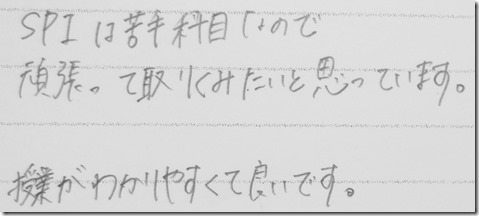 SPIは苦手科目なので
頑張って取りくみたいと思っています。
授業がわかりやすくて良いです。